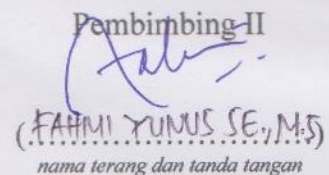 Pembimbing II
(FAHMI YUNUS SE., M.S)
nama terang dan tanda tangan